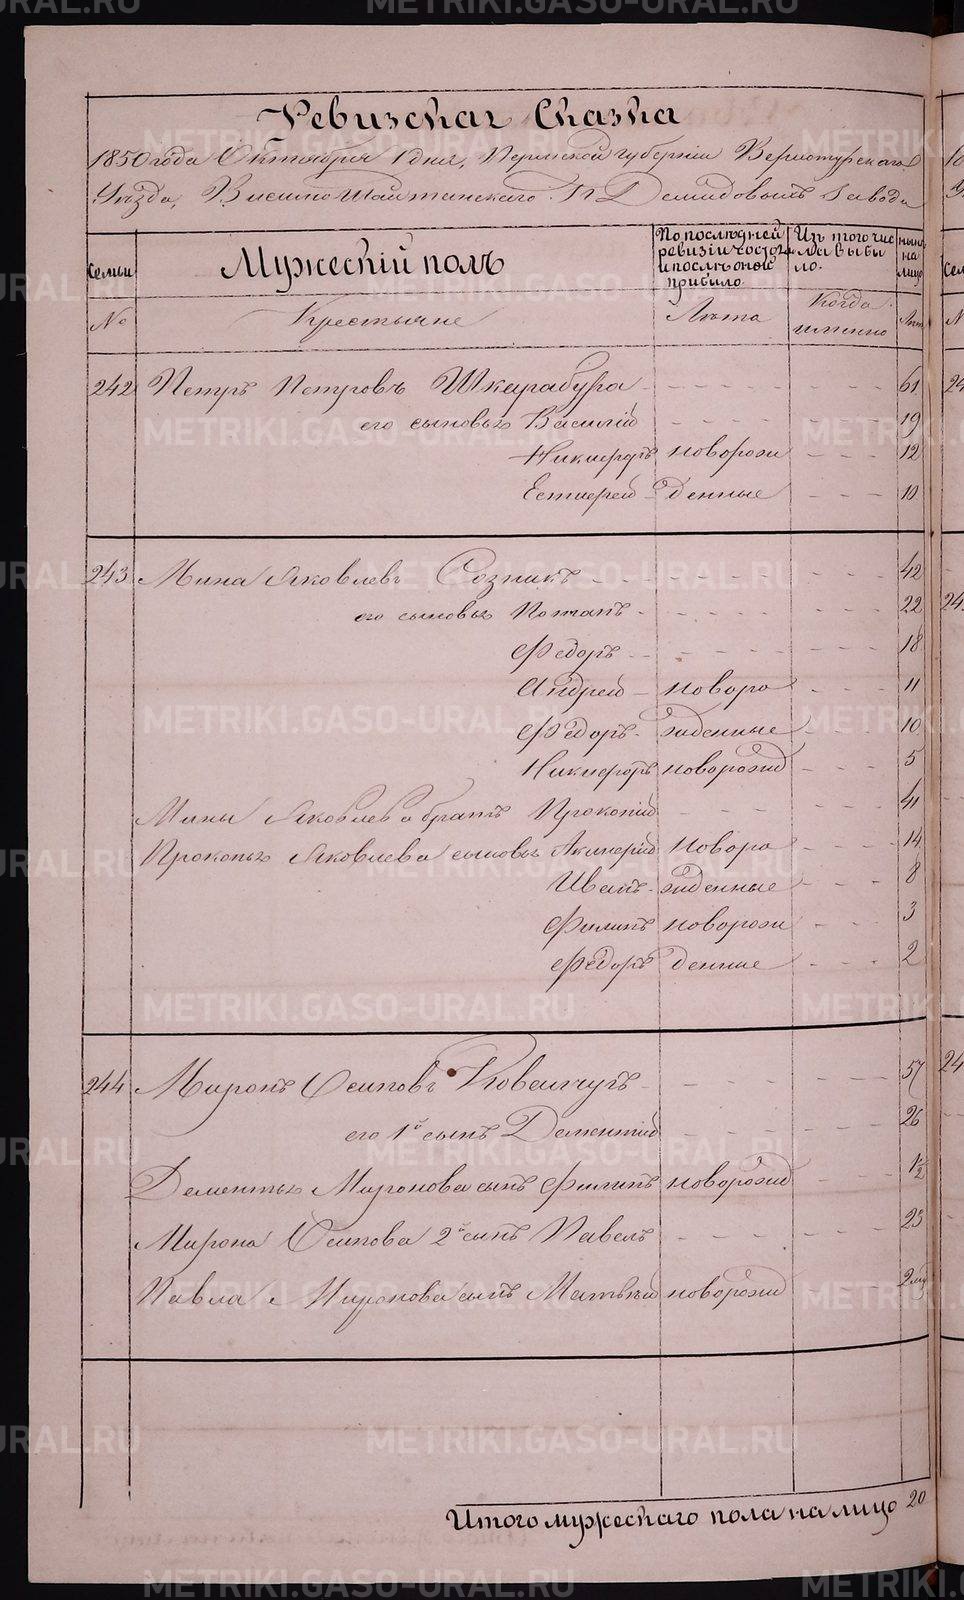 Ревизская Сказка
1850 года Октября 1 дня, Пермской губернии Верхотурскаго
Уезда, Висимо Шайтанскаго П Демидовыхъ завода
семьи
Мужескій полъ
По последней ревизіи состояло и после оной прибыло.
Изъ того числа выбыло.
ныне на лицо
№
Крестьяне
Лета
Когда именно
Лета
242 Петръ Петровъ Шкарабура 61
его сыновья Василій 19
Никифоръ новорож 12
Евстифей денные 10
243 Мина Яковлевъ Созникъ 42
его сыновья Потапъ 22
Федоръ 18
Андрей новоро 11
Федоръ жденные 10
Никифоръ новорожд 5
Мины Яковлева братъ Прокопій 41
Прокопья Яковлева сыновья Акинфій новоро 14
Иванъ жденные 8
Филипъ новорож 3
Федоръ денные 2
244 Миронъ Осиповъ Ковальчукъ 57
его 1й сынъ Дементій 26
Дементья Миронова сынъ Филипъ новорожд 1/2
Мирона Осипова 2й сынъ Павелъ 23
Павла Миронова сынъ Матвей новорожд 2 мц
Итого мужескаго пола на лицо 20
METRIKI.GASO-URAL.RU